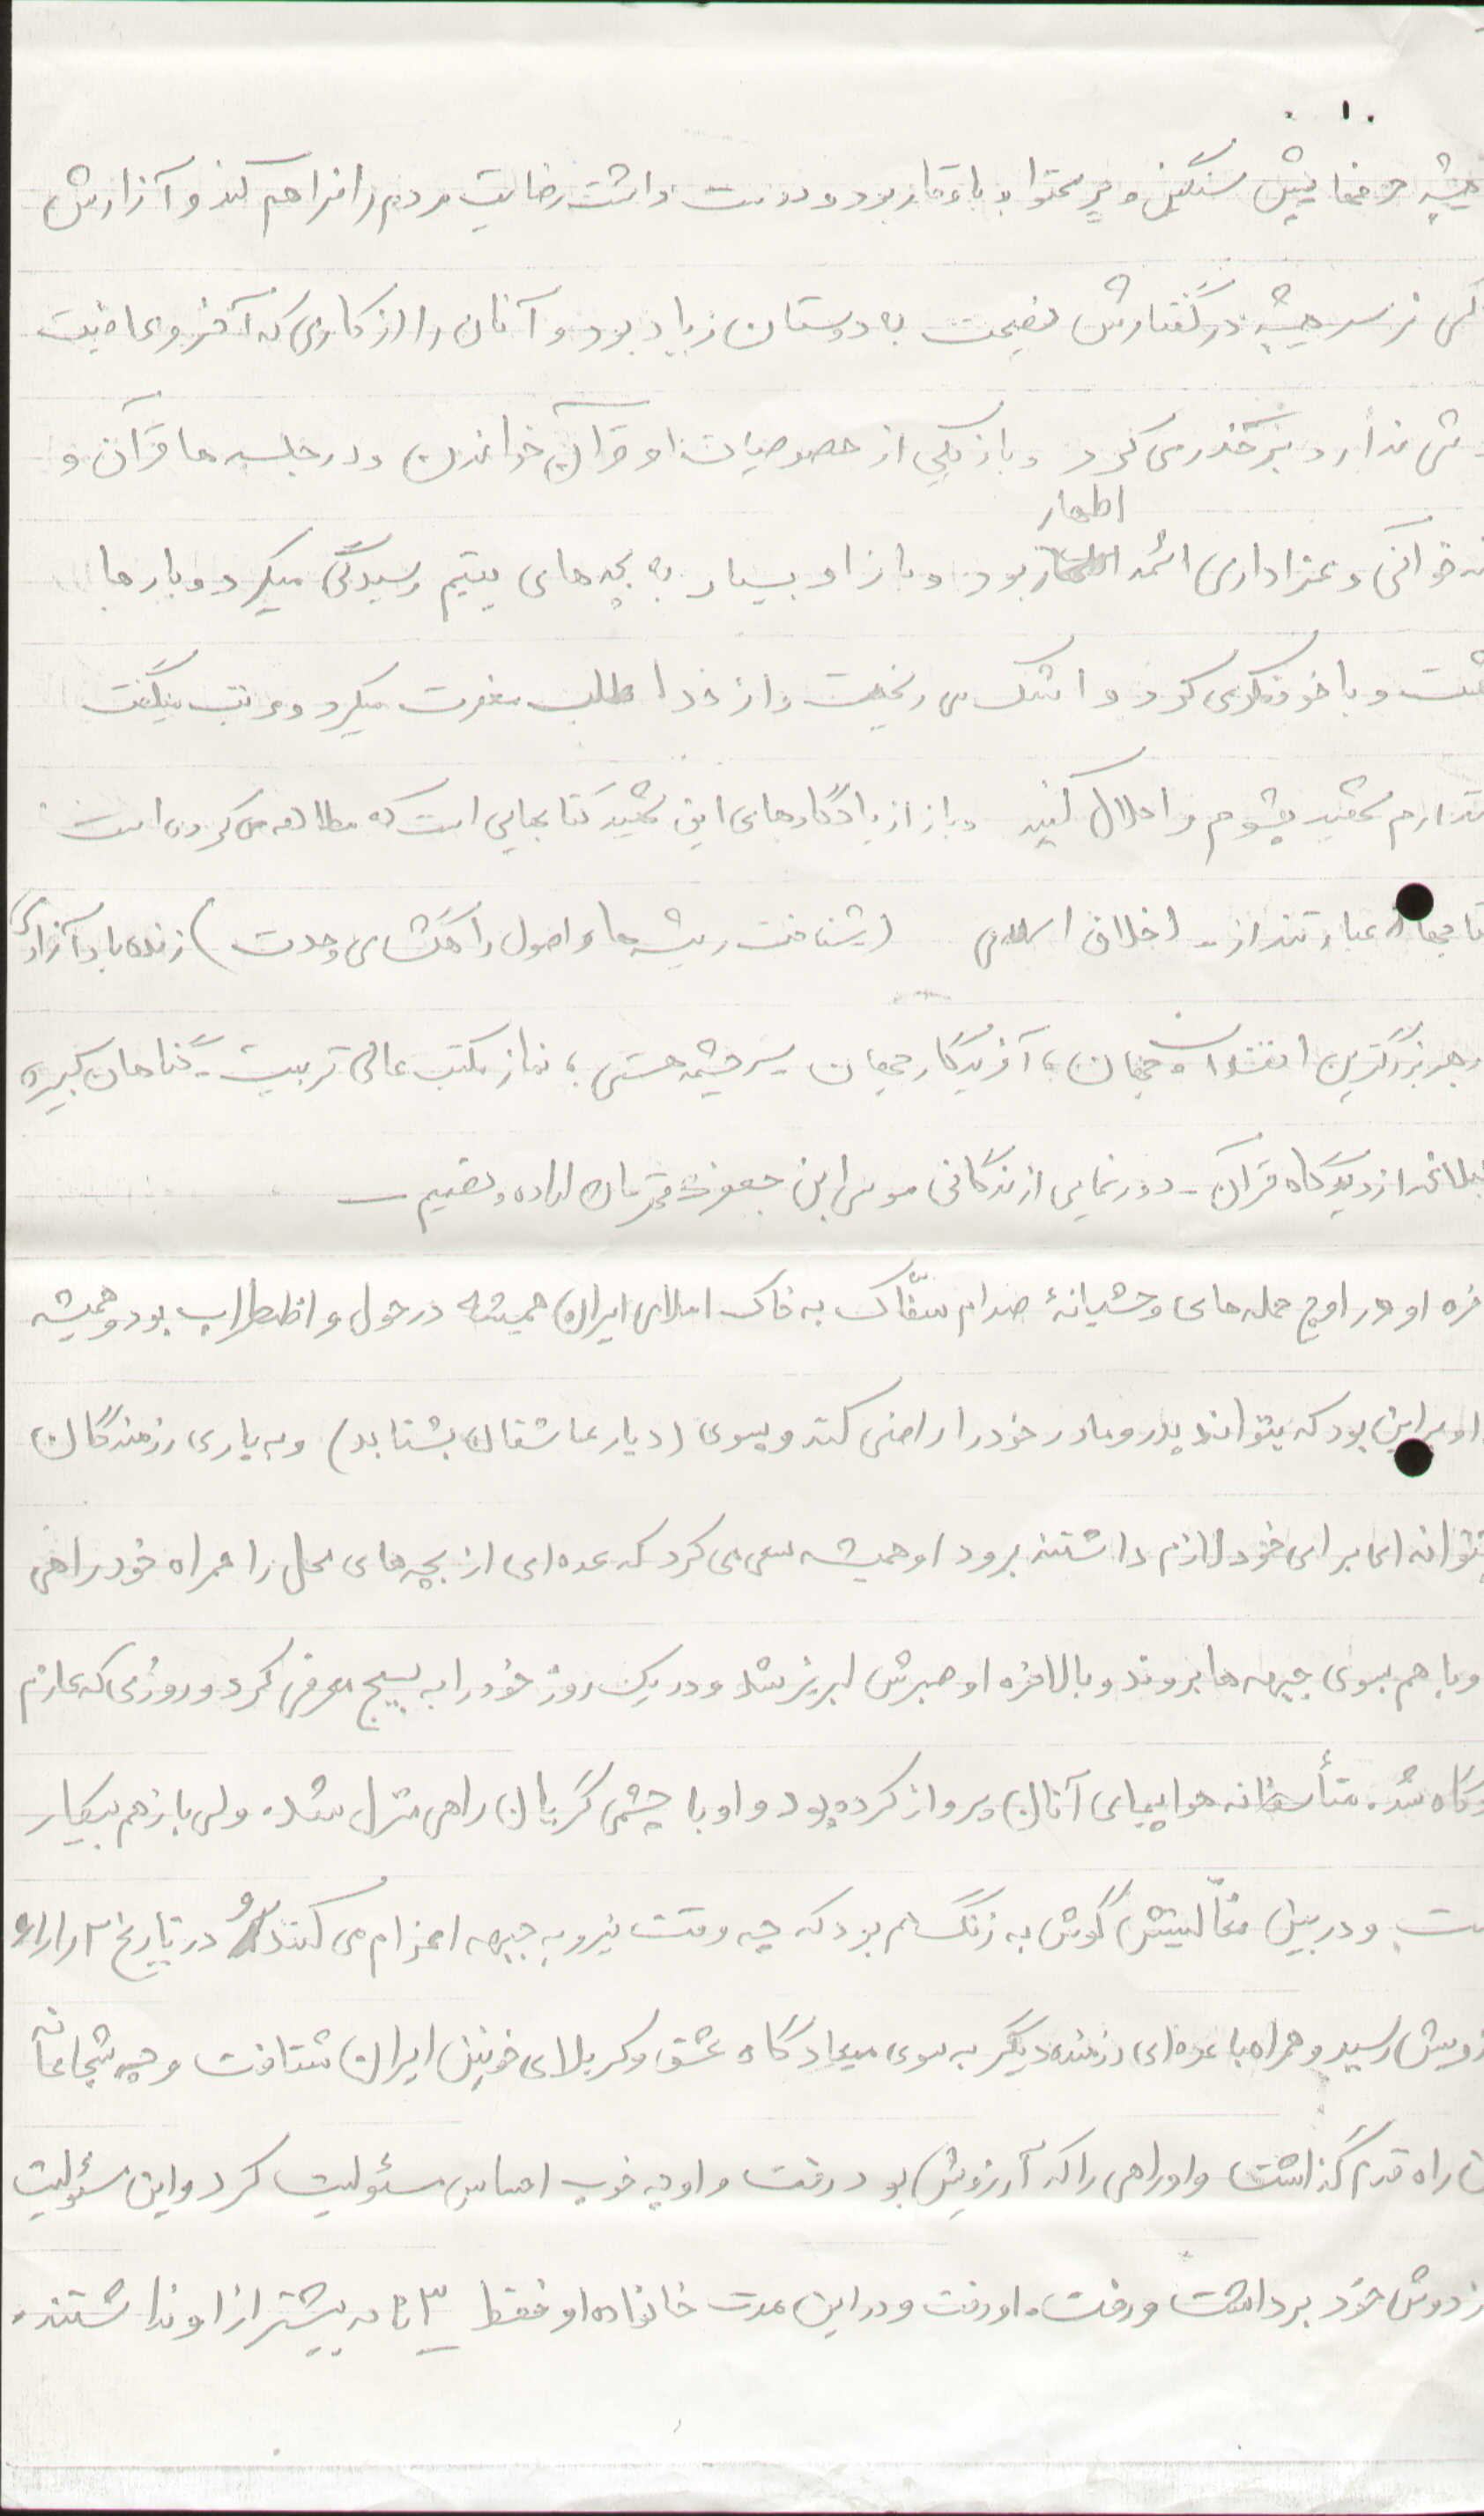 ۱۰
همیشه حرفهایش سنگین و پر محتوا و با وقار بود و دوست داشت رضایت مردم را فراهم کند و آزارش
کسی نرسد همیشه در گفتارش نصیحت به دوستان زیاد بود و آنان را از کاری که آخر و عاقبت
ندارد بر حذر می کرد و باز یکی از خصوصیات او قرآن خواندن و در جلسه ها قرآن و
خوانی و عزاداری ائمه اطهار بود و باز او بسیار به بچه های یتیم رسیدگی میکرد و بارها
و با خود فکر می کرد و اشک می ریخت و از خدا طلب مغفرت میکرد و مرتب میگفت
دارم شهید بشوم مرا حلال کنید و باز از یادگارهای این شهید کتابهایی است که مطالعه می کرده است
عبارتند از - اخلاق اسلامی (شناخت ریشه ها و اصول راهگشای وحدت) زنده باد آزادی
بزرگترین جهان ، آفریدگار جهان سرچشمه هستی ، نماز مکتب عالی تربیت - گناهان کبیره
از دیدگاه قرآن - دورنمایی از زندگانی موسی ابن جعفر قهرمان اراده و تصمیم -
او در اوج حمله های وحشیانهٔ صدام سفّاک به خاک اسلامی ایران همیشه در حول و اظطراب بود و همیشه
او براین بود که بتواند پدر و مادر خود را راضی کند و بسوی (دیار عاشقان بشتابد) و به یاری رزمندگان
برای خود لازم داشتند برود او همیشه سعی می کرد که عده ای از بچه های محل را همراه خود راهی
و با هم بسوی جبهه ها بروند و بالاخره او صبرش لبریز شد و در یک روز خود را به بسیج معرفی کرد و روزی که عازم
شد. متأسفانه هواپیمای آنان پرواز کرده بود و او با چشمی گریان راهی منزل شد. ولی باز هم بیکار
و در بین فعّالیتش گوش به زنگ هم بود که چه وقت نیرو به جبهه اعزام می کنند و در تاریخ
رسید و همراه با عده ای رزمنده دیگر به سوی میعادگاه عشق و کربلای خونین ایران شتافت و چه شجاعانه
راه قدم گذاشت و او راهی را که آرزویش بود رفت و او چه خوب احساس مسئولیت کرد و این مسئولیت
دوش خود برداشت و رفت. او رفت و در این مدت خانواده او فقط ۳ نامه بیشتر از او نداشتند.